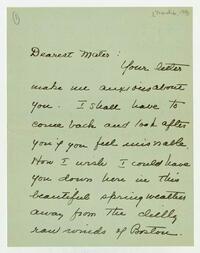 Dearest Mater:
Your letter
make me anxious about
you. I shall have to
come back and look after
you if you feel miserable
How I wish I could have
you down here in this
beautiful spring weather
away from the chilly
raw winds of Boston.